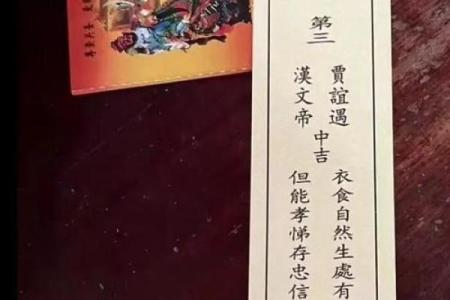 第三
賈誼遇
漢文帝
中吉
衣食自然生處有
但能孝悌存忠信